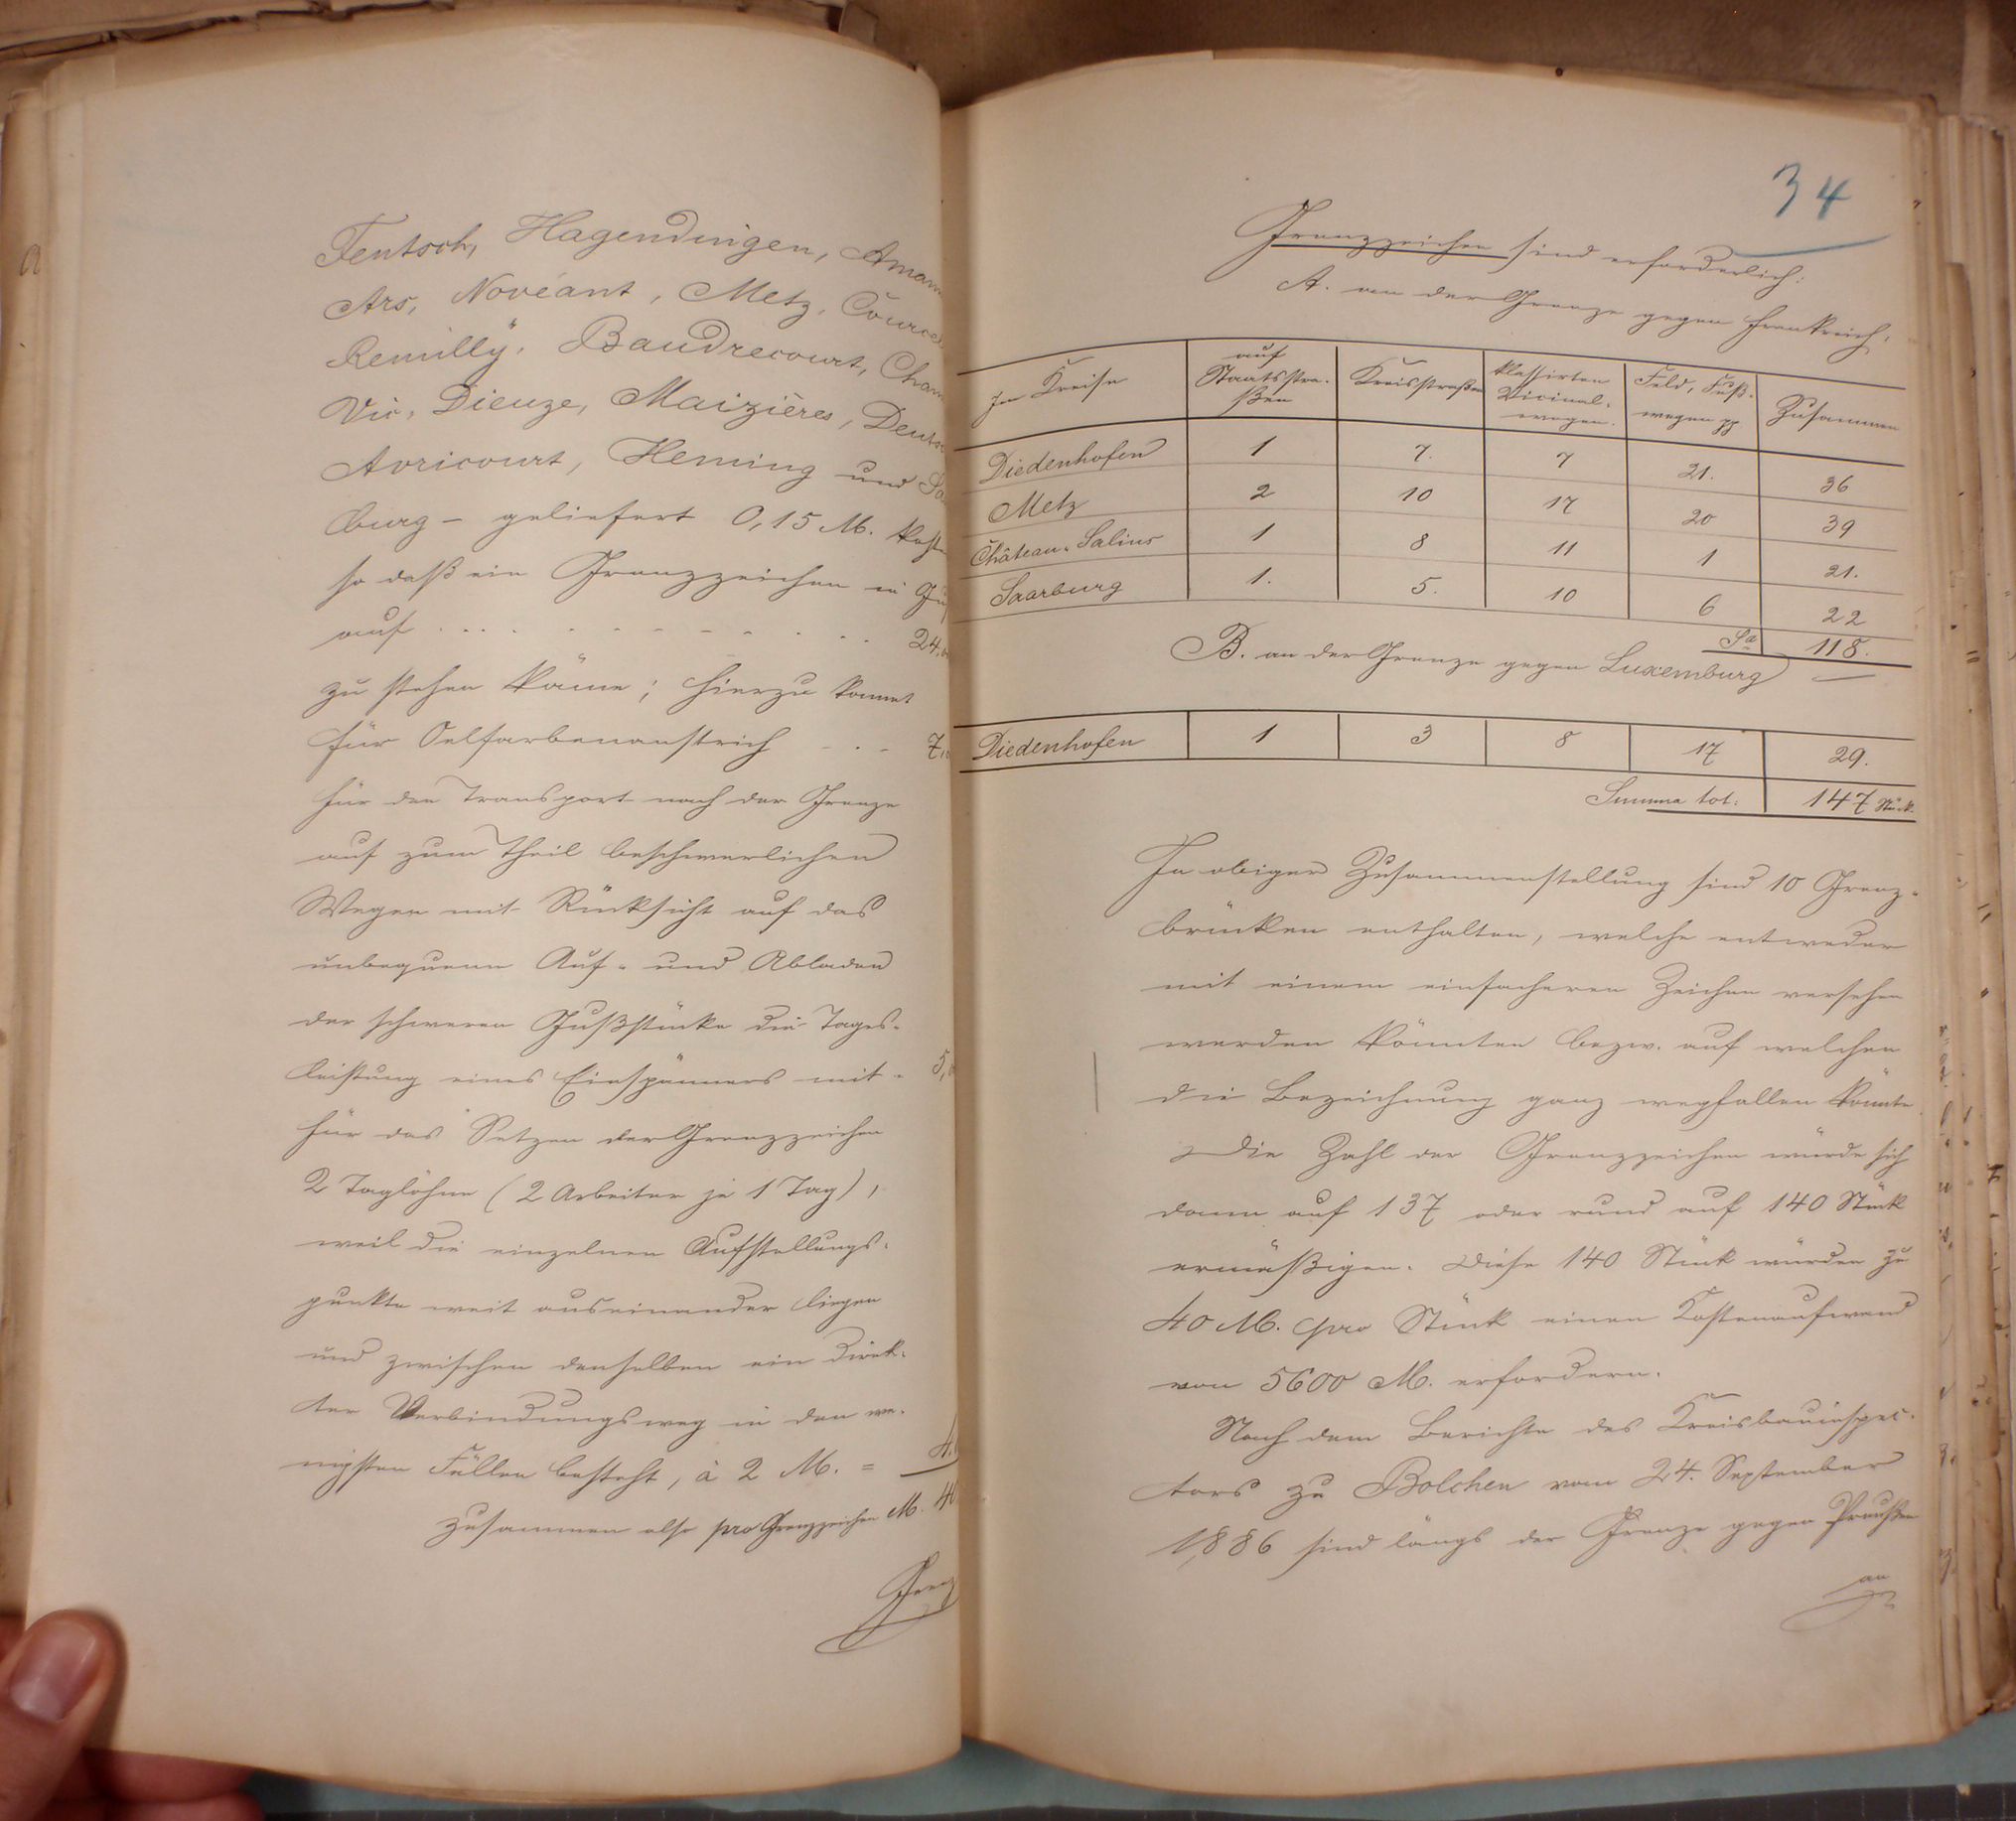 Fentsch, Hagendingen, Aman
Ars, Novéant, Metz, Courcel
Remilly, Baudrecourt, Cham
Vic, Dieuze, Maizières, Deuts
Avricourt, Heming und Sa
burg - geliefert 0,15 M. koste
so daß ein Grenzzeichen in Gu
auf . . . . - - - - - - . . . 24,
zu stehen käme; hierzu kommt
für Oelfarbenanstrich - . - 7,
für den Transport nach der Grenze
auf zum Theil beschwerlichen
Wegen mit Rücksicht auf das
unbequeme Auf- und Abladen
der schweren Gußstücke die Tages-
leistung eines Einspänners mit - 5,
für das Setzen der Grenzzeichen
2 Taglöhne (2 Arbeiter je 1 Tag),
weil die einzelnen Aufstellungs-
punkte weit auseinander liegen
und zwischen denselben ein direk-
ter Verbindungsweg in den we-
nigsten Fällen besteht, à 2 M. = 4.
zusammen also pro Grenzzeichen M. 40
Grenz
34
Grenzzeichen sind erforderlich:
A. an der Grenze gegen Frankreich.
Im Kreise | auf Staatsstra-ßen | Kreisstraßen | klassirten Vicinal-wegen. | Feld, Fuß-wegen pp | Zusammen
Diedenhofen 1 7. 7 21. 36
Metz 2 10 17 20 39
Château-Salins 1 8 11 1 21.
Saarburg 1. 5. 10 6 22
Sa 118.
B. an der Grenze gegen Luxemburg
Diedenhofen 1 3 8 17 29.
Summa tot: 147 Stück.
In obiger Zusammenstellung sind 10 Grenz-
brücken enthalten, welche entweder
mit einem einfacheren Zeichen versehen
werden könnten bezw. auf welchen
die Bezeichnung ganz wegfallen könnte.
Die Zahl der Grenzzeichen würde sich
dann auf 137 oder rund auf 140 Stück
ermäßigen. Diese 140 Stück würden zu
40 M. pro Stück einen Kostenaufwand
von 5600 M. erfordern.
Nach dem Berichte des Kreisbauinspec-
tors zu Bolchen vom 24. September
1886 sind längs der Grenze gegen Preußen
an